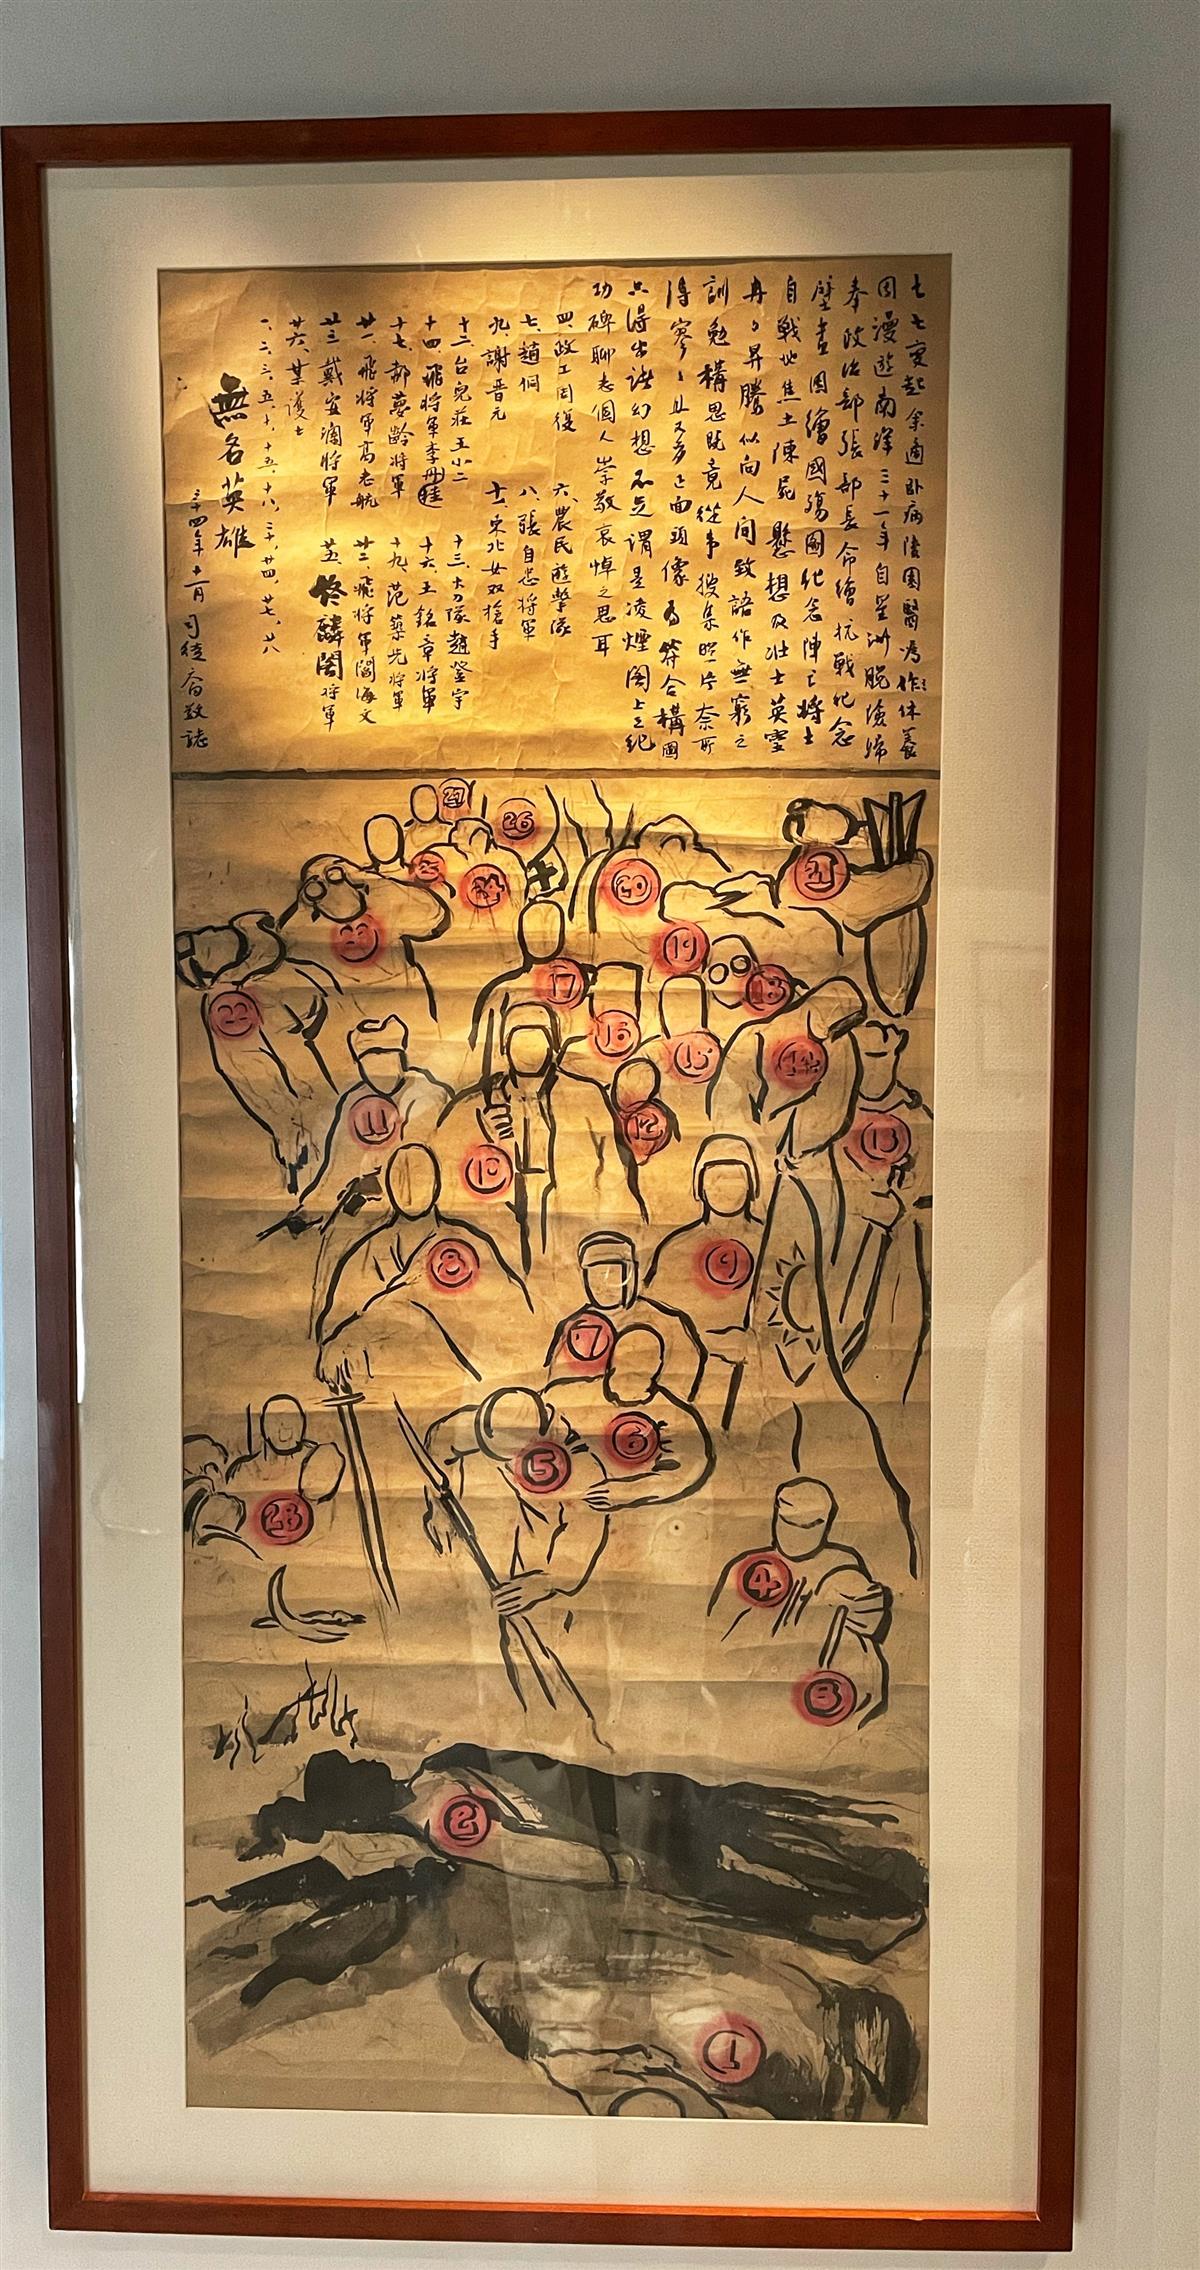 七七变起余適卧病陵園醫嘱作休养
因漫遊南洋三十一年自星洲脱險歸
奉政治部張部長命繪抗戰纪念
壁畫因繪國殤圖纪念陣亡将士
自戰地焦土陳屍懸想及壯士英靈
冉冉昇騰似向人間致語作無窮之
訓勉構思既竟從事搜集照片奈所
得寥寥且又多正面頭像為符合構圖
只得出諸幻想不足谓是凌煙閣上之纪
功碑聊志個人崇敬哀悼之思耳
四、政工周復
六、農民遊擊隊
七、趙侗
八、張自忠将軍
九、謝晋元
十一、東北女双槍手
十二、台兒莊王小二
十三、大刀隊趙登宇
十四、飛将軍李桂丹
十六、王銘章将軍
十七、郝夢齡将軍
十九、范築先将軍
廿一、飛将軍高志航
廿二、飛将軍閻海文
廿三、戴安瀾将軍
廿五、佟麟閣将軍
廿六、某護士
一、二、三、五、十、十五、十八、二十、廿四、廿七、廿八
無名英雄
三十四年十二月 司徒喬敬誌
27
26
25
24
20
21
23
19
18
22
17
16
15
14
11
12
13
10
8
9
7
6
5
28
4
3
2
1